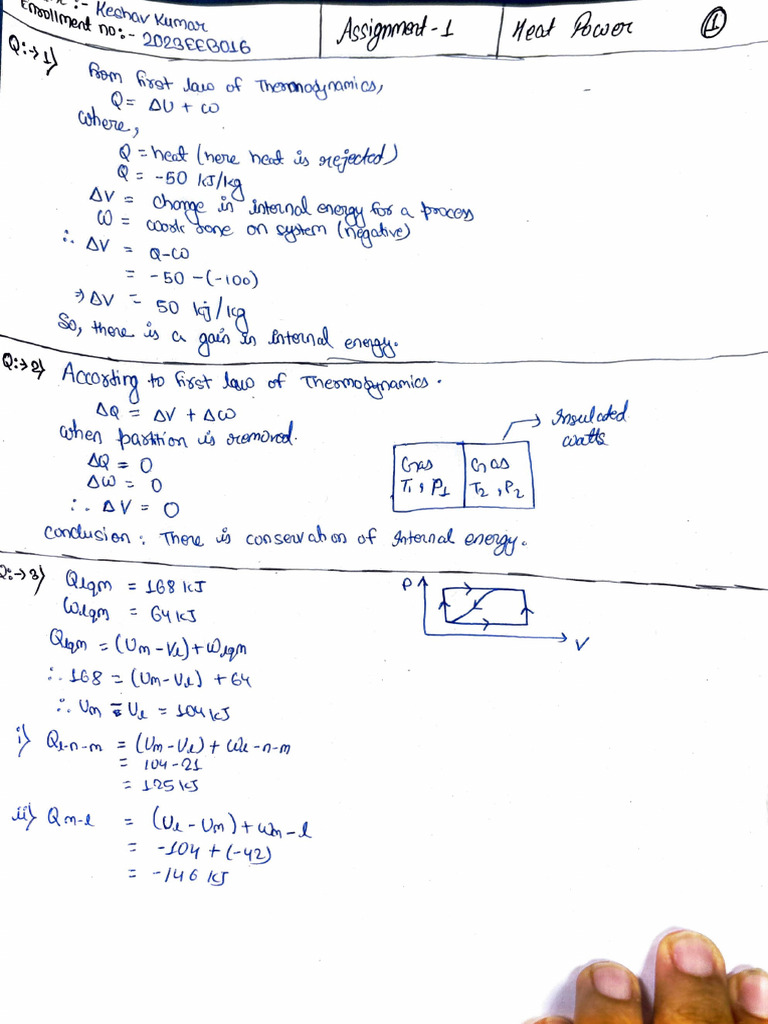 :- Keshav Kumar
Enrollment no:- 2023EEB016
Assignment-1
Heat Power
1
Q:→1)
from first law of Thermodynamics,
Q = ΔU + W
where,
Q = heat (here heat is rejected)
Q = -50 kJ/kg
ΔV = change in internal energy for a process
W = work done on system (negative)
∴ ΔV = Q-W
= -50 -(-100)
⇒ ΔV = 50 kj/kg
So, there is a gain in internal energy.
Q:→2)
According to first law of Thermodynamics.
ΔQ = ΔV + ΔW
when partition is removed.
ΔQ = 0
ΔW = 0
∴ ΔV = 0
Insulated
watts
Gas
T1, P1
Gas
T2, P2
conclusion: There is conservation of Internal energy.
Q:→3)
Qlqm = 168 kJ
Wlqm = 64 kJ
Qlqm = (Um-Vl)+Wlqm
∴ 168 = (Um-Ul) + 64
∴ Um - Ul = 104 kJ
P
V
i) Ql-n-m = (Um-Vl) + Wl-n-m
= 104-21
= 125 kJ
ii) Qm-l = (Ul-Um)+Wm-l
= -104 + (-42)
= -146 kJ